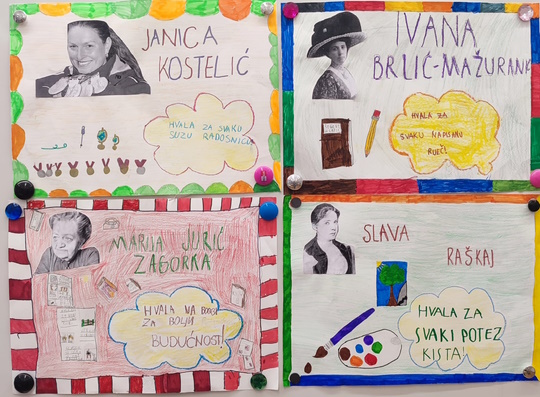 JANICA
KOSTELIĆ
HVALA ZA SVAKU
SUZU RADOSNICU
IVANA
BRLIĆ-MAŽURANIĆ
HVALA ZA
SVAKU NAPISANU
RIJEČ!
MARIJA JURIĆ
ZAGORKA
HVALA NA BORBI
ZA BOLJU
BUDUĆNOST!
SLAVA
RAŠKAJ
HVALA ZA
SVAKI POTEZ
KISTA!